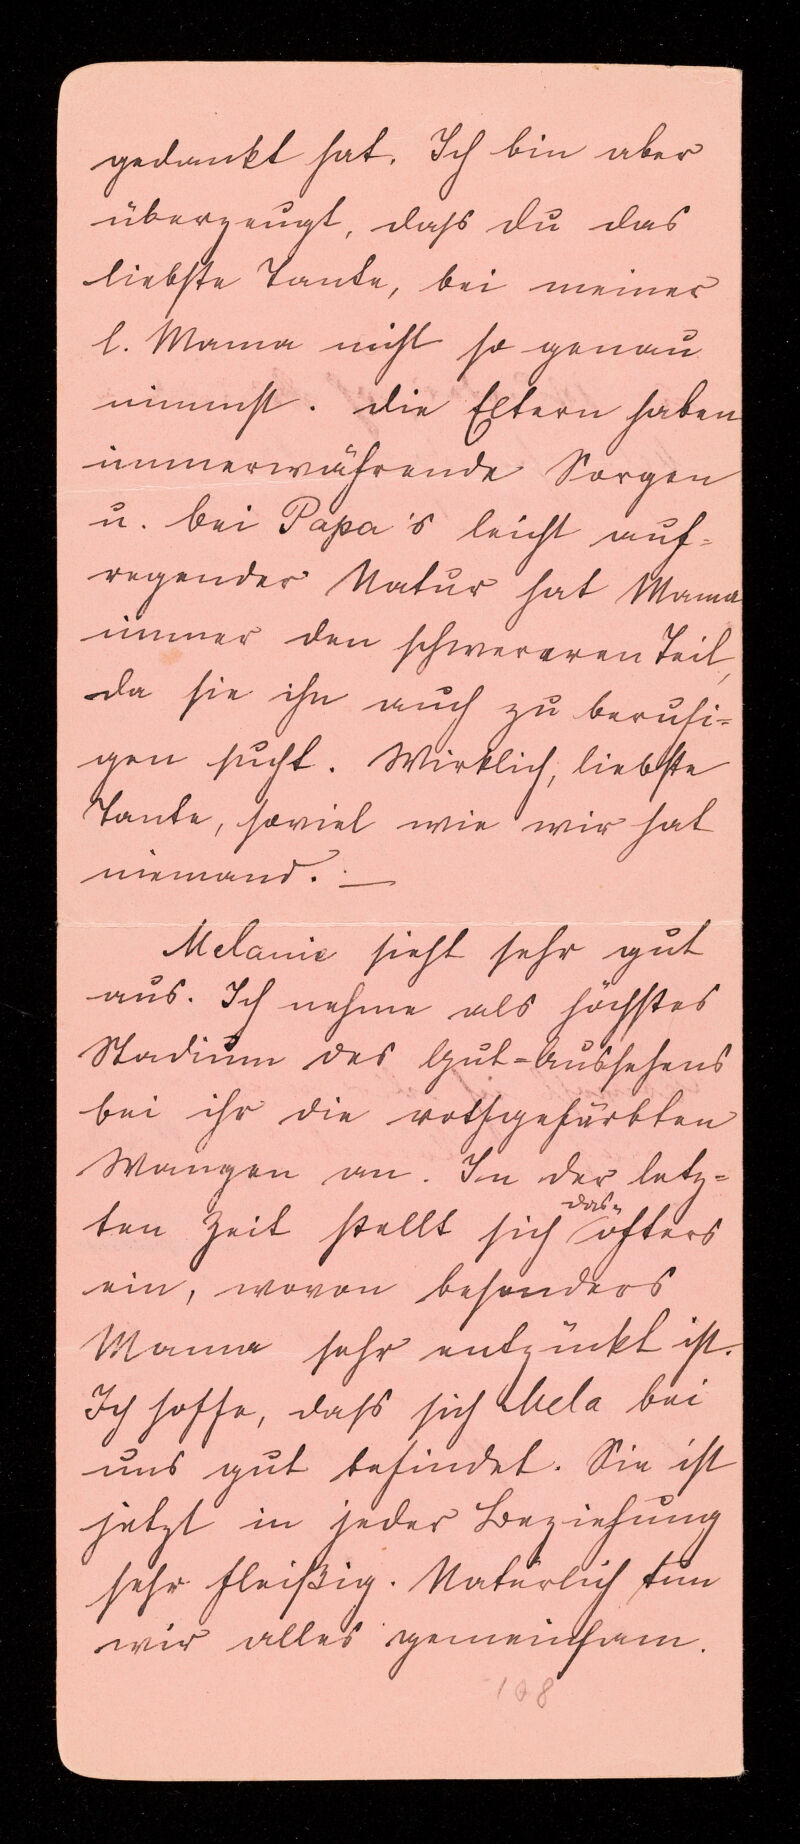 gedankt hat. Ich bin aber
überzeugt, daſs du das
liebste Tante, bei meiner
l. Mama nicht so genau
nimmst. Die Eltern haben
immerwährende Sorgen
u. bei Papa's leicht auf-
regender Natur hat Mama
immer den schwereren Teil,
da sie ihn auch zu beruhi-
gen sucht. Wirklich, liebste
Tante, soviel wie wir hat
niemand. —
Melanie sieht sehr gut
aus. Ich nehme als höchstes
Stadium des Gut-Aussehens
bei ihr die rothgefärbten
Wangen an. In der letz-
ten Zeit stellt sich das öfters
ein, wovon besonders
Mama sehr entzückt ist.
Ich hoffe, daſs sich Mela bei
uns gut befindet. Sie ist
jetzt in jeder Beziehung
sehr fleißig. Natürlich tun
wir alles gemeinsam.
108